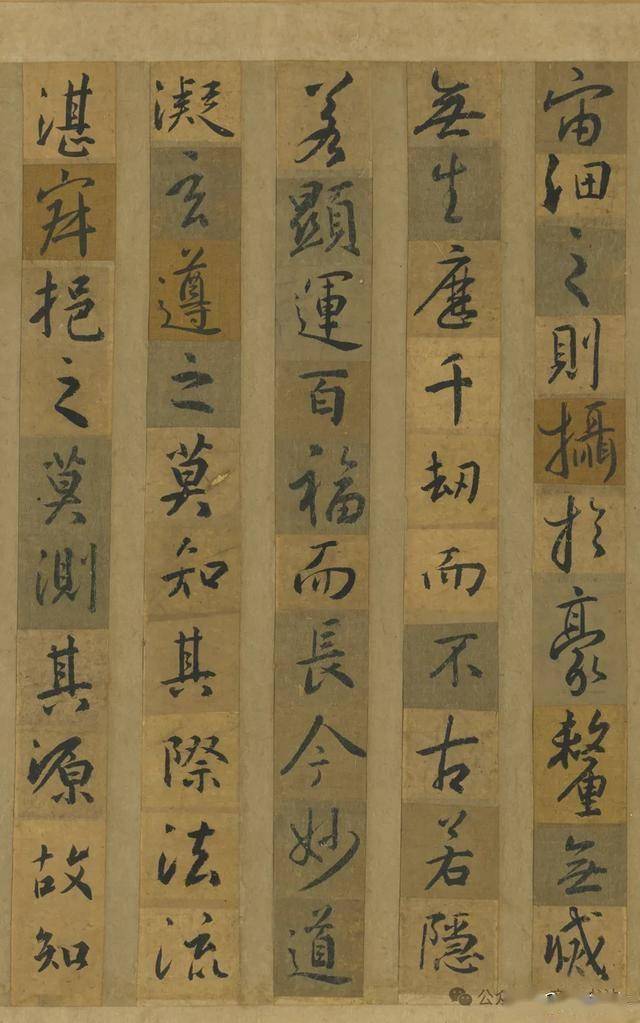 宙細之則攝於豪釐無滅
無生歷千劫而不古若隱
若顯運百福而長今妙道
凝玄遵之莫知其際法流
湛寂挹之莫測其源故知
公众